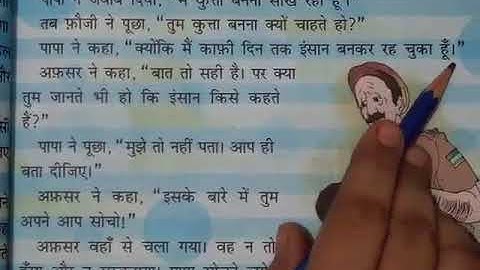 पापा ने जवाब दिया, "मैं कुत्ता बनना सीख रहा हूँ।"
तब फ़ौजी ने पूछा, "तुम कुत्ता बनना क्यों चाहते हो?"
पापा ने कहा, "क्योंकि मैं काफ़ी दिन तक इंसान बनकर रह चुका हूँ।"
अफ़सर ने कहा, "बात तो सही है। पर क्या
तुम जानते भी हो कि इंसान किसे कहते
हैं?"
पापा ने पूछा, "मुझे तो नहीं पता। आप ही
बता दीजिए।"
अफ़सर ने कहा, "इसके बारे में तुम
अपने आप सोचो!"
अफ़सर वहाँ से चला गया। वह न तो
हँसा और न